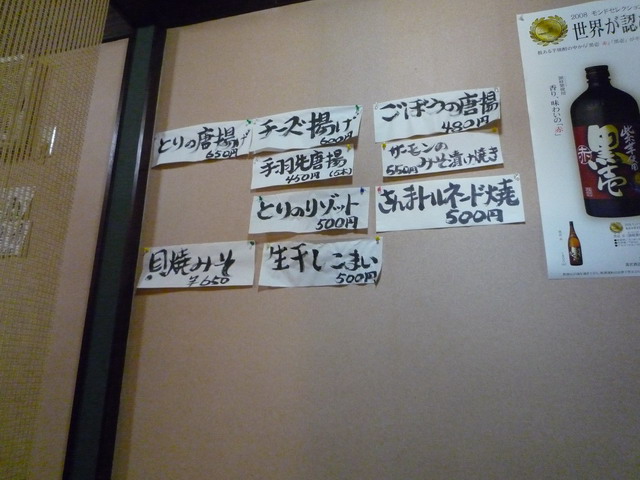 とりの唐揚げ
650円
チーズ揚げ
600円
ごぼうの唐揚
480円
手羽先唐揚
450円 (5本)
サーモンの
みそ漬け焼き
550円
とりのリゾット
500円
さんまトルネード焼
500円
貝焼みそ
¥650
生干しこまい
500円
2008 モンドセレクション
世界が認
香り、味わいの、「赤」
黒壱
赤